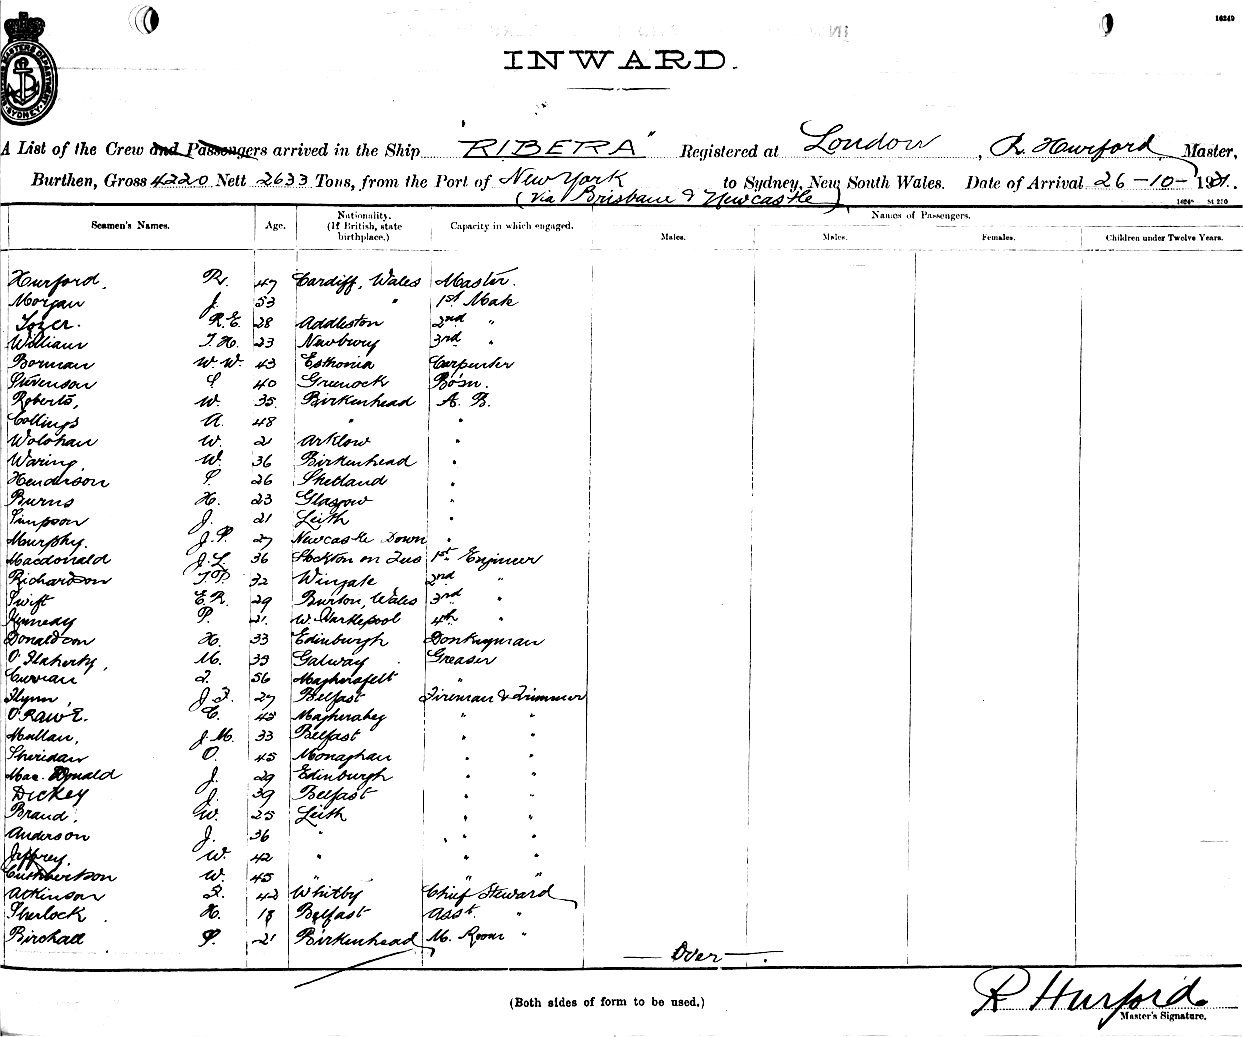 16249
INWARD.
A List of the Crew and Passengers arrived in the Ship "RIBERA" Registered at London, R. Hurford, Master,
Burthen, Gross 4220 Nett 2633 Tons, from the Port of New York to Sydney, New South Wales. Date of Arrival 26-10-1921.
(via Brisbane & Newcastle)
Names of Passengers.
Seamen's Names. Age. Nationality. (If British, state birthplace.) Capacity in which engaged. Males. Males. Females. Children under Twelve Years.
Hurford, R. 47 Cardiff, Wales Master.
Morgan J. 53 " 1st Mate
Tozer. R.E. 28 Addleston 2nd "
William T.H. 23 Newbury 3rd "
Borman W.W. 43 Esthonia Carpenter
Stevenson S. 40 Greenock Bosn.
Roberts, W. 35 Birkenhead A.B.
Collings A. 48 " "
Wolohan W. 21 Arklow "
Waring W. 36 Birkenhead "
Henderson 26 Shetland "
Burns H. 23 Glasgow "
Simpson J. 21 Leith "
Murphy. J.P. 27 Newcastle Down "
Macdonald J.L. 36 Stockton on Tees 1st Engineer
Richardson T.P. 32 Wingate 2nd "
Swift E.R. 29 Burton, Wales 3rd "
Kennedy P. 21. W. Hartlepool 4th "
Donaldson H. 33 Edinburgh Donkeyman
O'Flaherty, M. 33 Galway Greaser
Curran 56 Magherafelt "
Flynn, J.F. 27 Belfast Fireman & Trimmer
O'RawE. C. 43 " "
Mullan, J.M. 33 Belfast " "
Sheridan O. 45 Monaghan " "
Mac Donald J. 29 Edinburgh " "
Dickey J. 39 Belfast " "
Braud. W. 25 Leith " "
Anderson J. 36 " " "
Jeffrey. W. 42 " " "
Cuthbertson W. 45 " " "
Atkinson 42 Whitby Chief Steward
Sherlock H. 18 Belfast Asst. "
Birchall P. 21 Birkenhead M. Room "
— Over —.
(Both sides of form to be used.)
R Hurford.
Master's Signature.